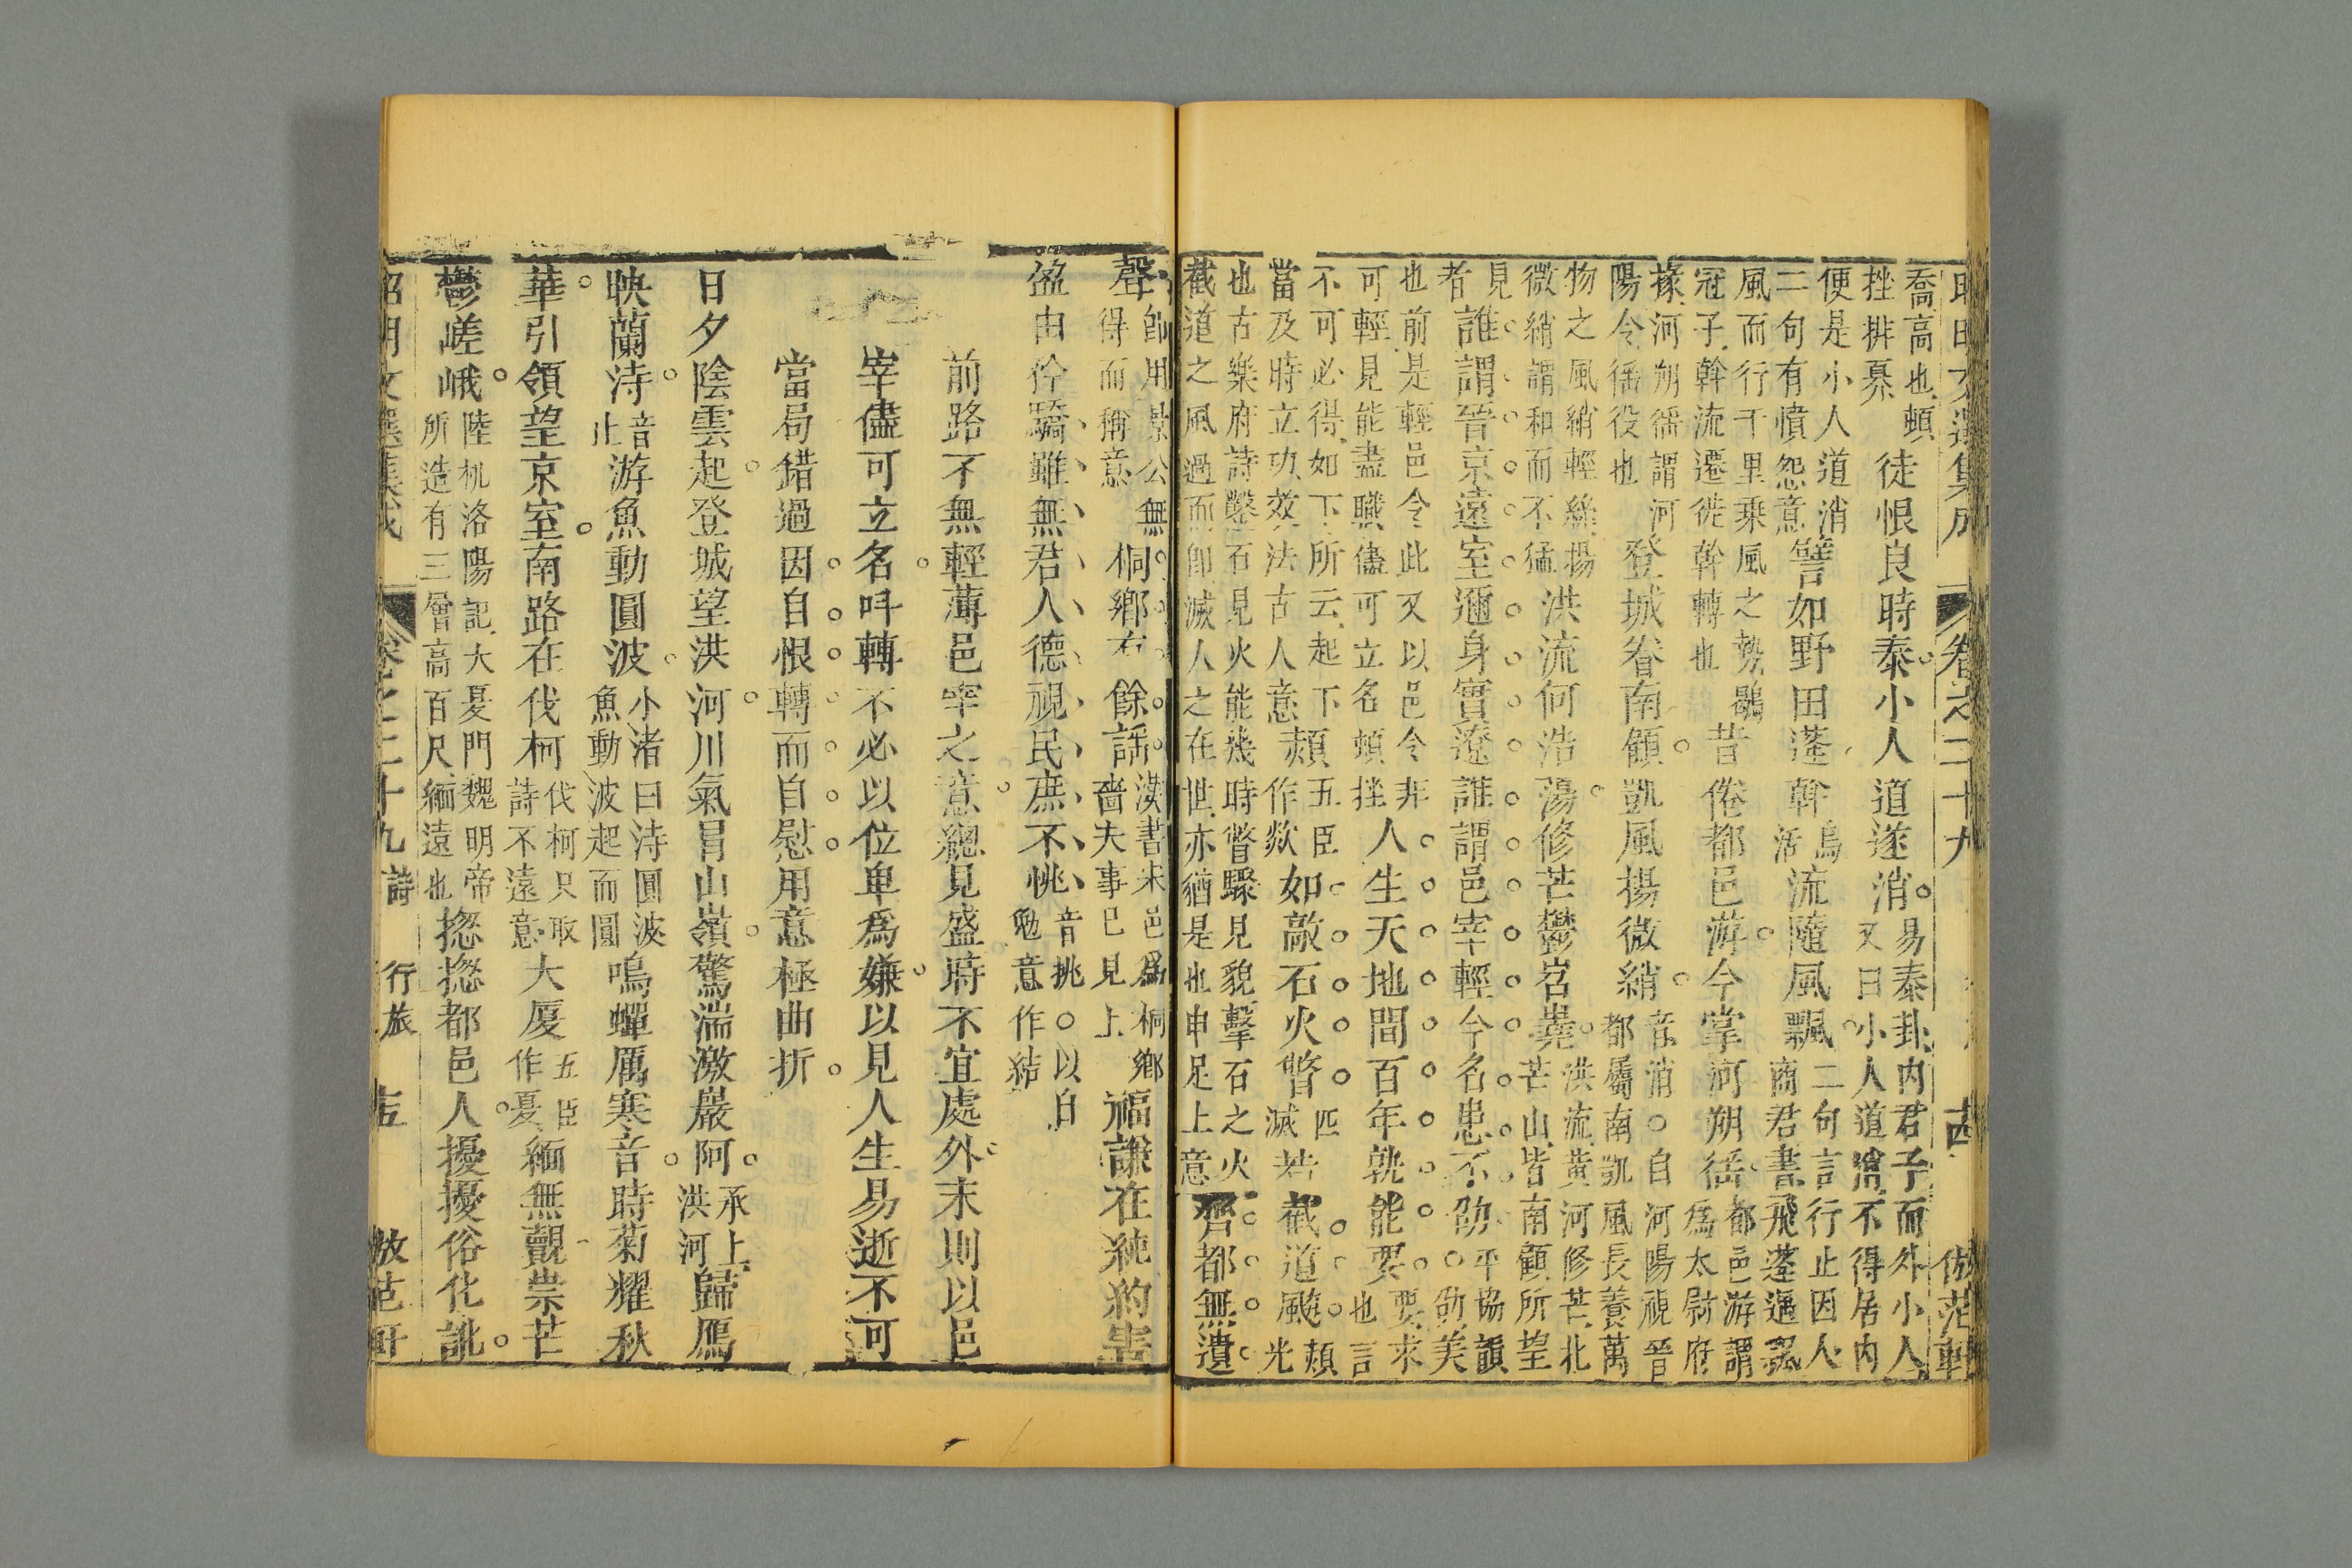 昭明文選集成 卷之二十九 倣范軒
喬高也頓
挫排
徒恨良時泰小人道遂消
易泰卦內君子而外小人
又曰小人道消不得居內
便是小人道消
二句有憤怨意
譬如野田蓬斡
烏
活
流隨風飄
二句言行止因人
商君書飛蓬遇飄
風而行千里乘風之勢鶡
冠子斡流遷徙斡轉也
昔倦都邑游今掌河朔徭
都邑游謂
為太尉府
掾河朔徭謂河
陽令徭役也
登城眷南顧凱風揚微綃
音消○自河陽視晉
都屬南凱風長養萬
物之風綃輕絲揚
微綃謂和而不猛
洪流何浩蕩修芒鬱岧嶤
洪流黃河修芒北
芒山皆南顧所望
見
者
誰謂晉京遠室邇身實遼誰謂邑宰輕令名患不劭
平協韻
劭美
也前是輕邑令此又以邑令非
可輕見能盡職儘可立名頓挫
人生天地間百年孰能要
要求
也言
不可必得如下所云起下
當及時立功效法古人意
熲
五臣
作歘
如敲石火瞥
匹
滅
若截道飆
熲
光
也古樂府詩鑿石見火能幾時瞥驟見貌擊石之火
截道之風過而即滅人之在世亦猶是也申足上意
齊都無遺
聲
即用景公無
得而稱意
桐鄉有餘謠
漢書朱邑爲桐鄉
嗇夫事已見上
福謙在純約害
盈由矜驕雖無君人德視民庶不恌
音挑○以自
勉意作結
前路不無輕薄邑宰之意總見盛時不宜處外末則以邑
宰儘可立名呌轉不必以位卑爲嫌以見人生易逝不可
當局錯過因自恨轉而自慰用意極曲折
日夕陰雲起登城望洪河川氣冒山嶺驚湍激巖阿
承上
洪河
歸鴈
映蘭洔
音
止
游魚動圓波
小渚曰洔圓波
魚動波起而圓
鳴蟬厲寒音時菊耀秋
華引領望京室南路在伐柯
伐柯只取
詩不遠意
大厦
五臣
作夏
緬無覿崇芒
鬱嵯峨
陸机洛陽記大夏門魏明帝
所造有三層高百尺緬遠也
揔揔都邑人擾擾俗化訛
昭明文選集成 卷之二十九 詩 行旅 倣范軒